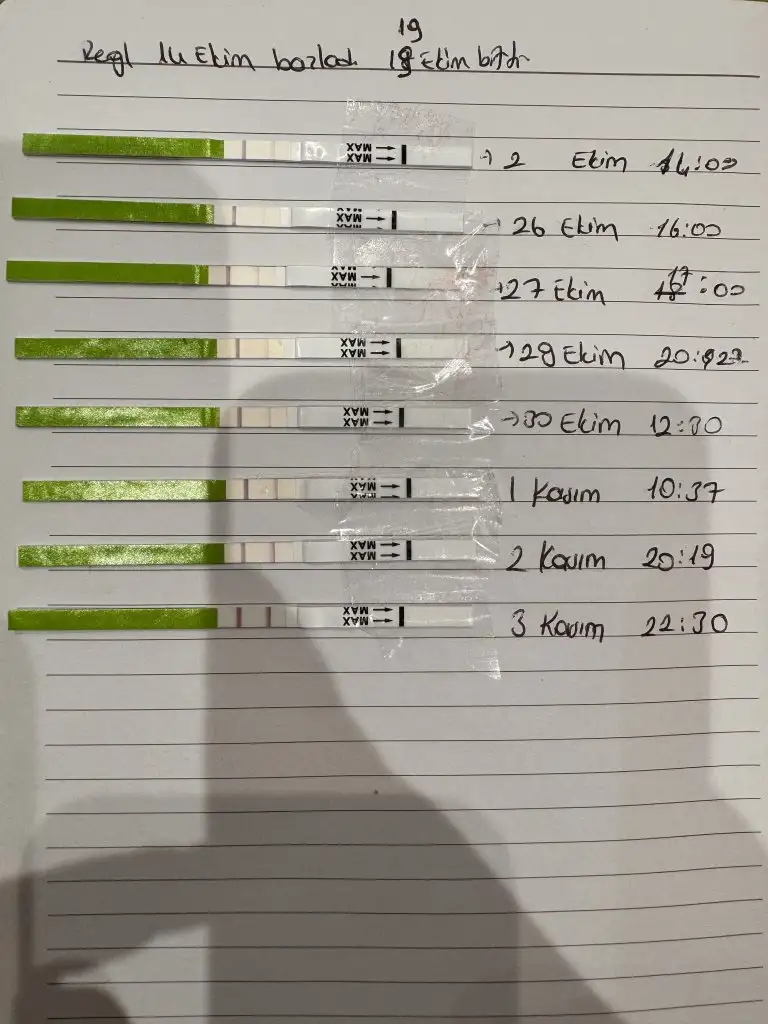 19
Regl 14 Ekim başladı 18 Ekim bitti
MAX MAX → 2 Ekim 14:00
MAX → 26 Ekim 16:00
MAX → 27 Ekim 17:00
MAX MAX → 29 Ekim 20:22
MAX MAX → 30 Ekim 12:30
MAX 1 Kasım 10:37
MAX MAX 2 Kasım 20:19
MAX MAX 3 Kasım 22:30